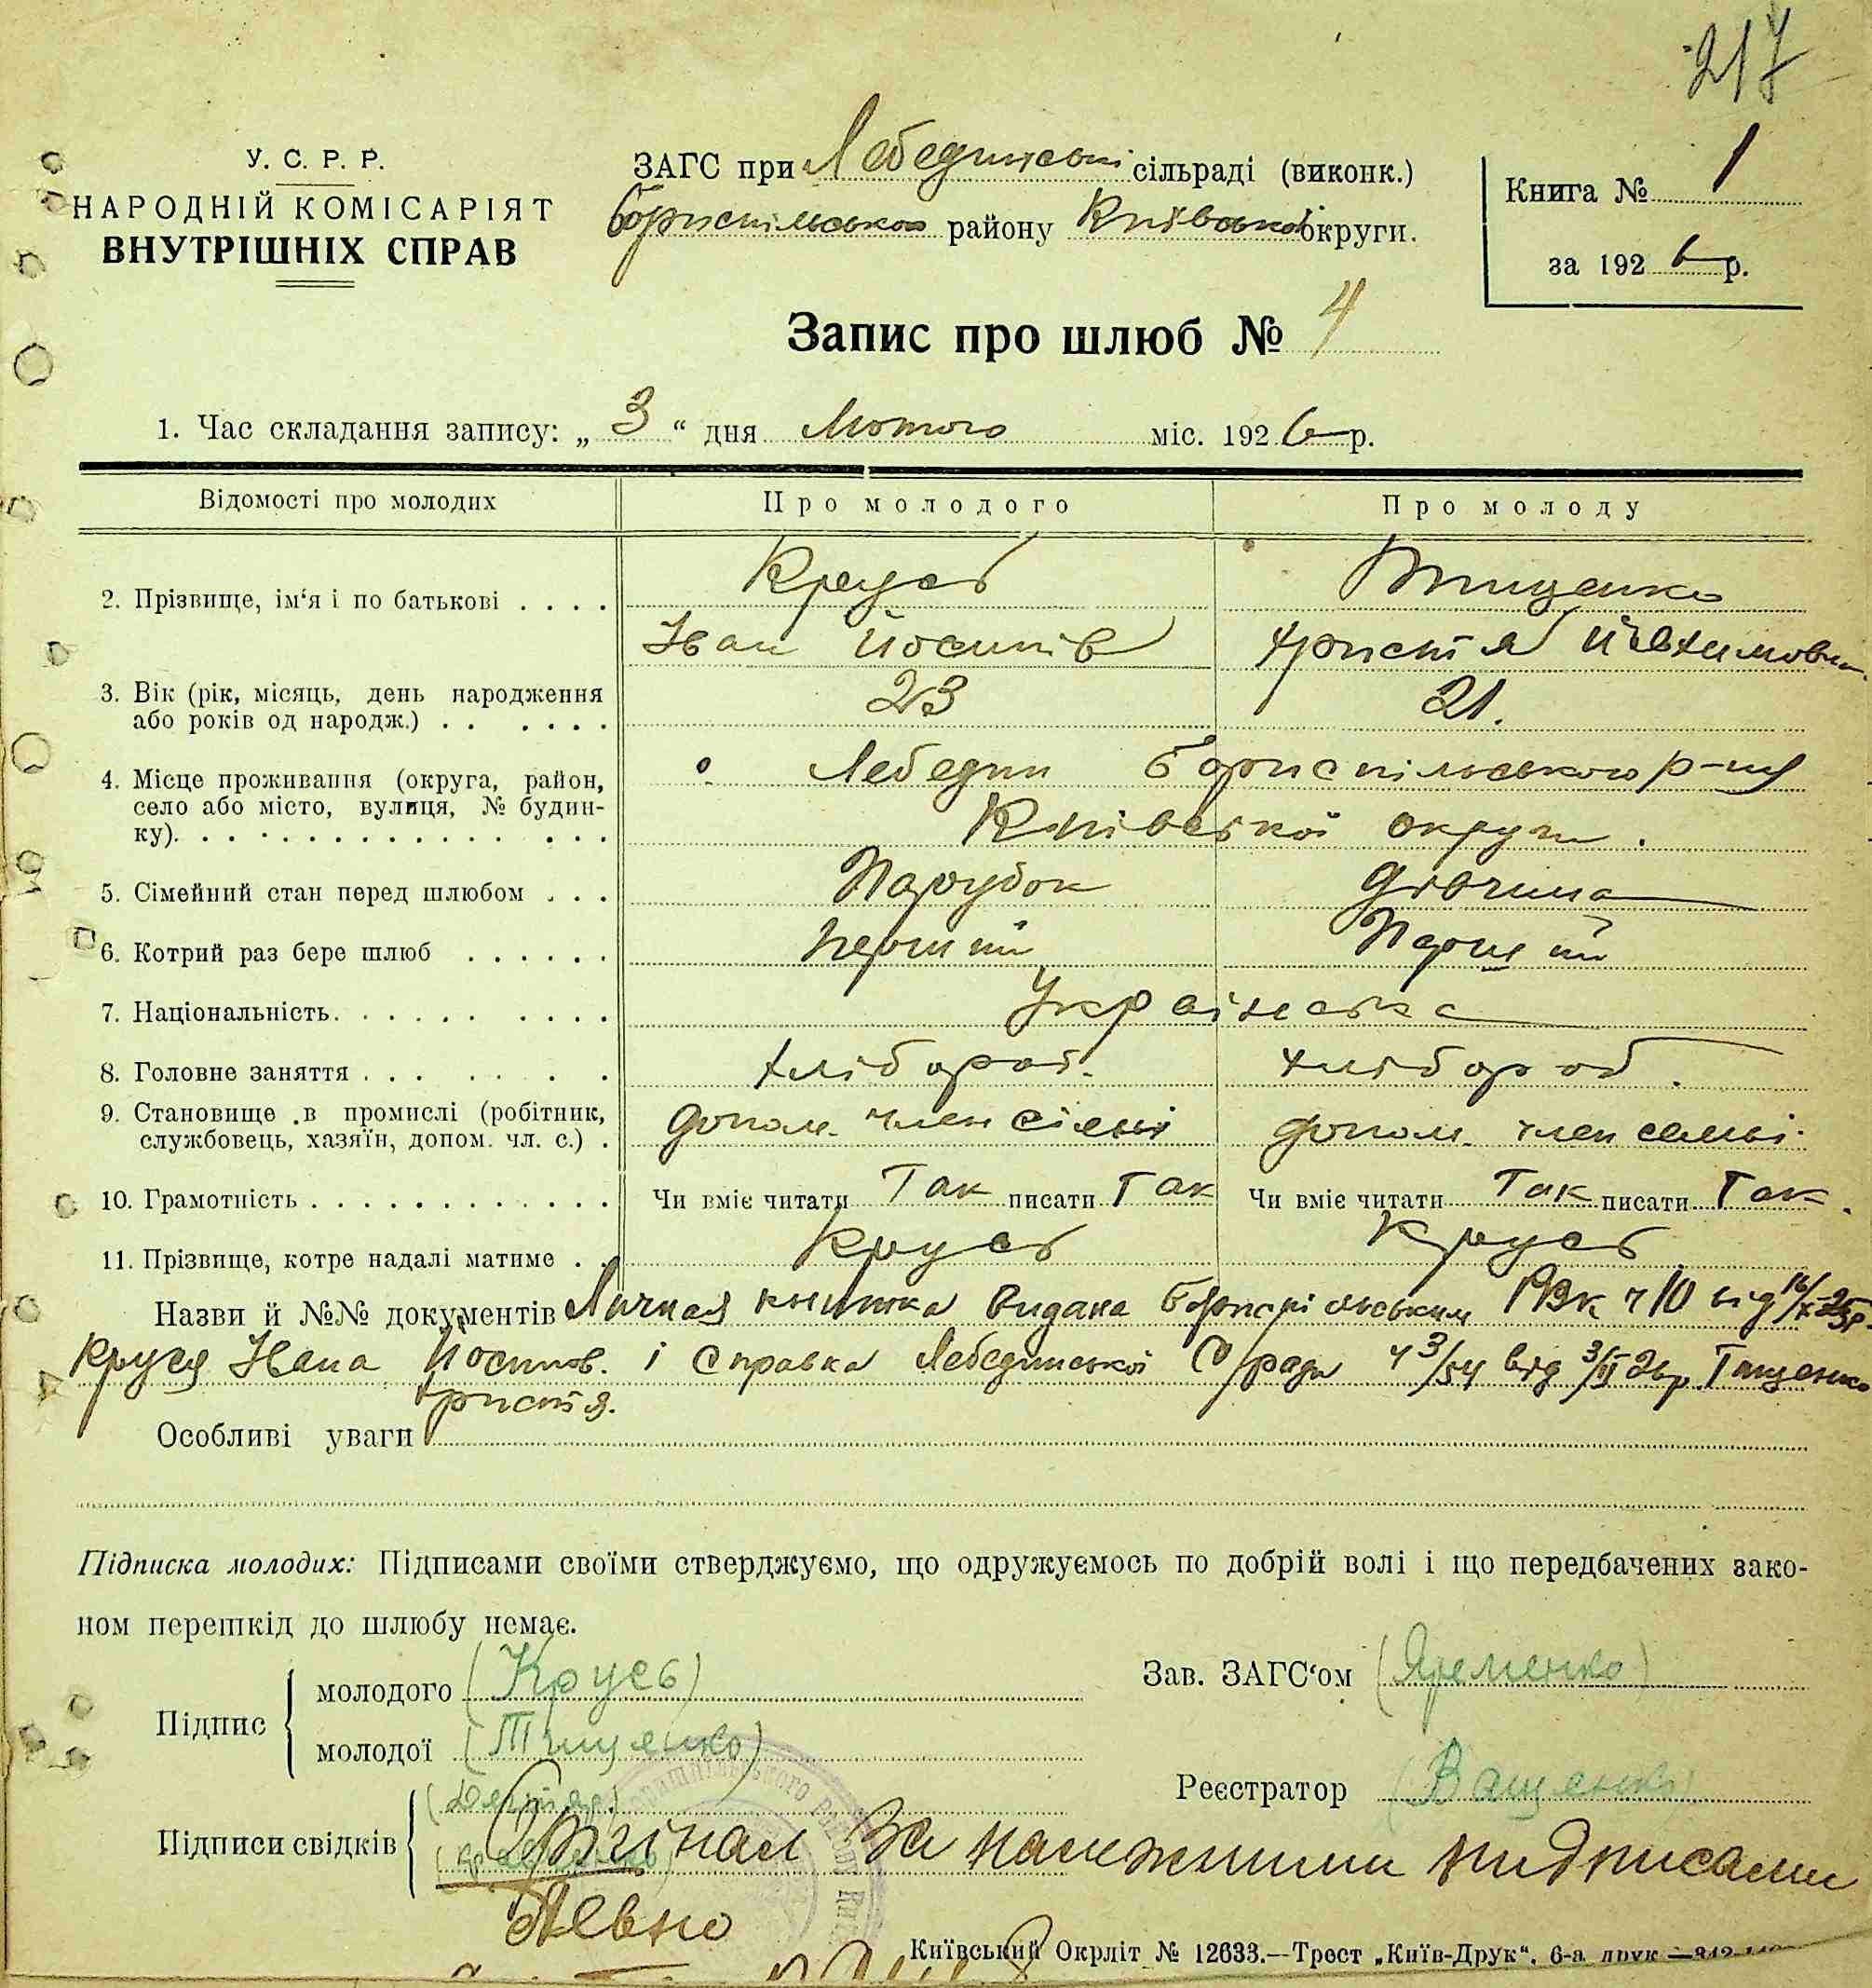 217
У. С. Р. Р.
НАРОДНІЙ КОМІСАРІЯТ
ВНУТРІШНІХ СПРАВ
ЗАГС при Лебединській сільраді (виконк.)
Бориспільського району Київської округи.
Книга № 1
за 1926 р.
Запис про шлюб № 4
1. Час складання запису: „ 3 “ дня Лютого міс. 1926 р.
Відомості про молодих Про молодого Про молоду
2. Прізвище, ім‘я і по батькові . . . . Крусь Тищенко
Іван Йосипів Христя Йевхимовна
3. Вік (рік, місяць, день народження
або років од народж.) . . . . . . 23 21.
4. Місце проживання (округа, район,
село або місто, вулиця, № будин-
ку). . . . . . . . . . . . . . . .
Лебедин Бориспільського р-ну
Київської округи.
5. Сімейний стан перед шлюбом . . . Парубок дівчина
6. Котрий раз бере шлюб . . . . . . Перший Перший
7. Національність. . . . . . . . . . Українська
8. Головне заняття . . . . . . . Хлібороб. Хлібороб.
9. Становище в промислі (робітник,
службовець, хазяїн, допом. чл. с.) . допом. член сімьї допом. член семьї.
10. Грамотність . . . . . . . . . . . . . Чи вміє читати Так писати Так Чи вміє читати Так писати Так.
11. Прізвище, котре надалі матиме . . Крусь Крусь
Назви й №№ документів Личная книжка видана Бориспільським РВК ч 10 від 16/X-25р.
Круся Івана Йосипов. і Справка Лебединської С/ради ч 3/54 від 3/II 26р. Тищенко
Христя.
Особливі уваги
Підписка молодих: Підписами своїми стверджуємо, що одружуємось по добрій волі і що передбачених зако-
ном перешкід до шлюбу немає.
Підпис
молодого (Крусь)
молодої (Тищенко)
Зав. ЗАГС‘ом (Яременко)
Реєстратор (Ващенко)
Підписи свідків
Оригінал за належними підписами
Певно
Київський Окрліт № 12633.—Трест „Київ-Друк“. 6-а друк